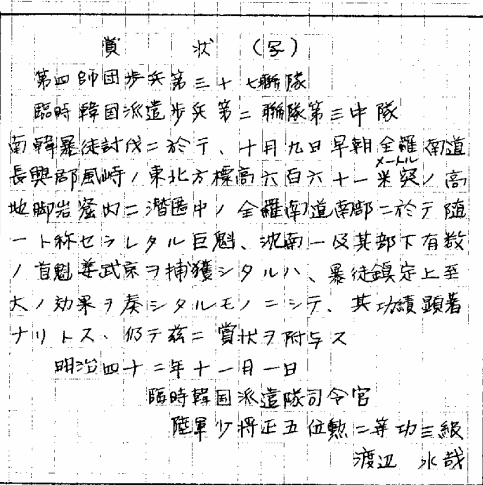 賞状(写)
第四師団歩兵第三十七聯隊
臨時韓国派遣歩兵第二聯隊第三中隊
南韓暴徒討伐ニ於テ、十月九日早朝全羅南道
長興郡風峙ノ東北方標高六百六十一米突ノ高
メートル
地脚岩窟内ニ潜匿中ノ全羅南道南部ニ於テ随
一ト称セラレタル巨魁、沈南一及其部下有数
ノ首魁姜武京ヲ捕獲シタルハ、暴徒鎮定上至
大ノ効果ヲ奏シタルモノニシテ、其功績顕著
ナリトス、仍テ茲ニ賞状ヲ附与ス
明治四十二年十一月一日
臨時韓国派遣隊司令官
陸軍少将正五位勲二等功三級
渡辺水哉